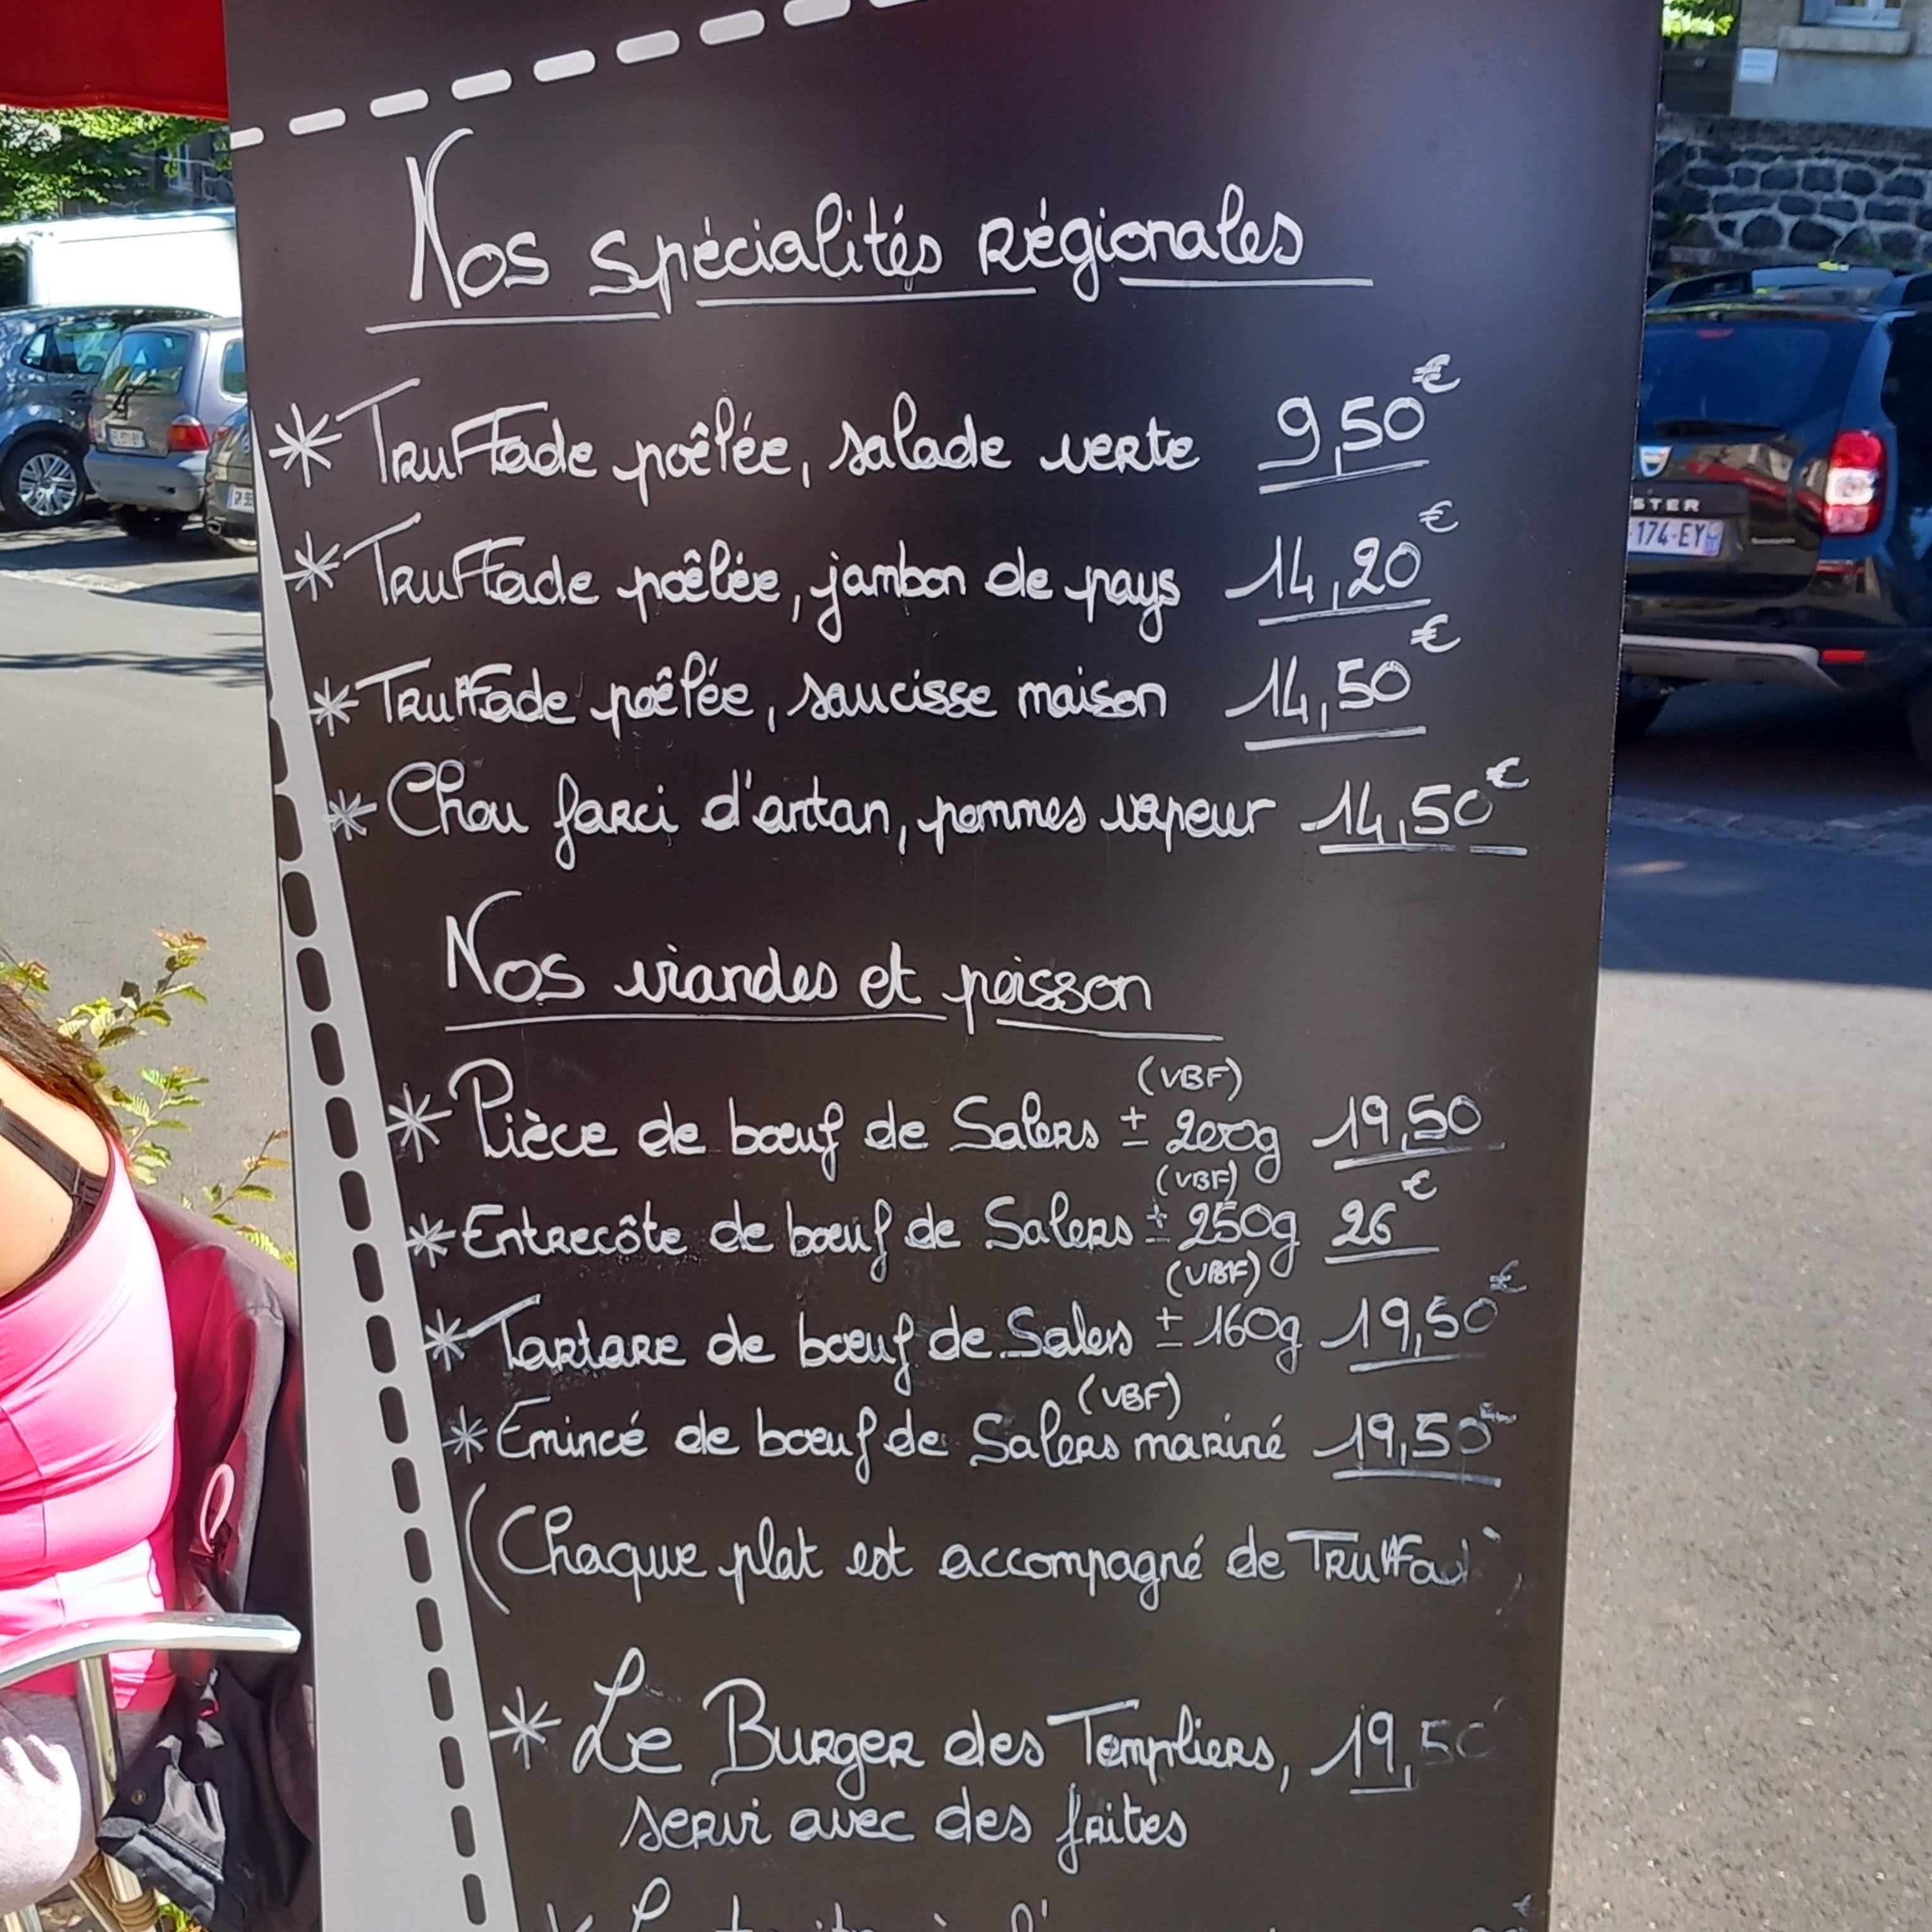 Nos spécialités Régionales
* Truffade poêlée, salade verte 9,50€
* Truffade poêlée, jambon de pays 14,20€
* Truffade poêlée, saucisse maison 14,50€
* Chou farci d'antan, pommes vapeur 14,50€
Nos viandes et poisson
(VBF)
* Pièce de bœuf de Salers ± 200g 19,50
(VBF)
* Entrecôte de bœuf de Salers ± 250g 26€
(VBF)
* Tartare de bœuf de Salers ± 160g 19,50€
(VBF)
* Emincé de bœuf de Salers mariné 19,50
(Chaque plat est accompagné de Truffad
* Le Burger des Templiers, 19,50
servi avec des frites
STER
174-EY